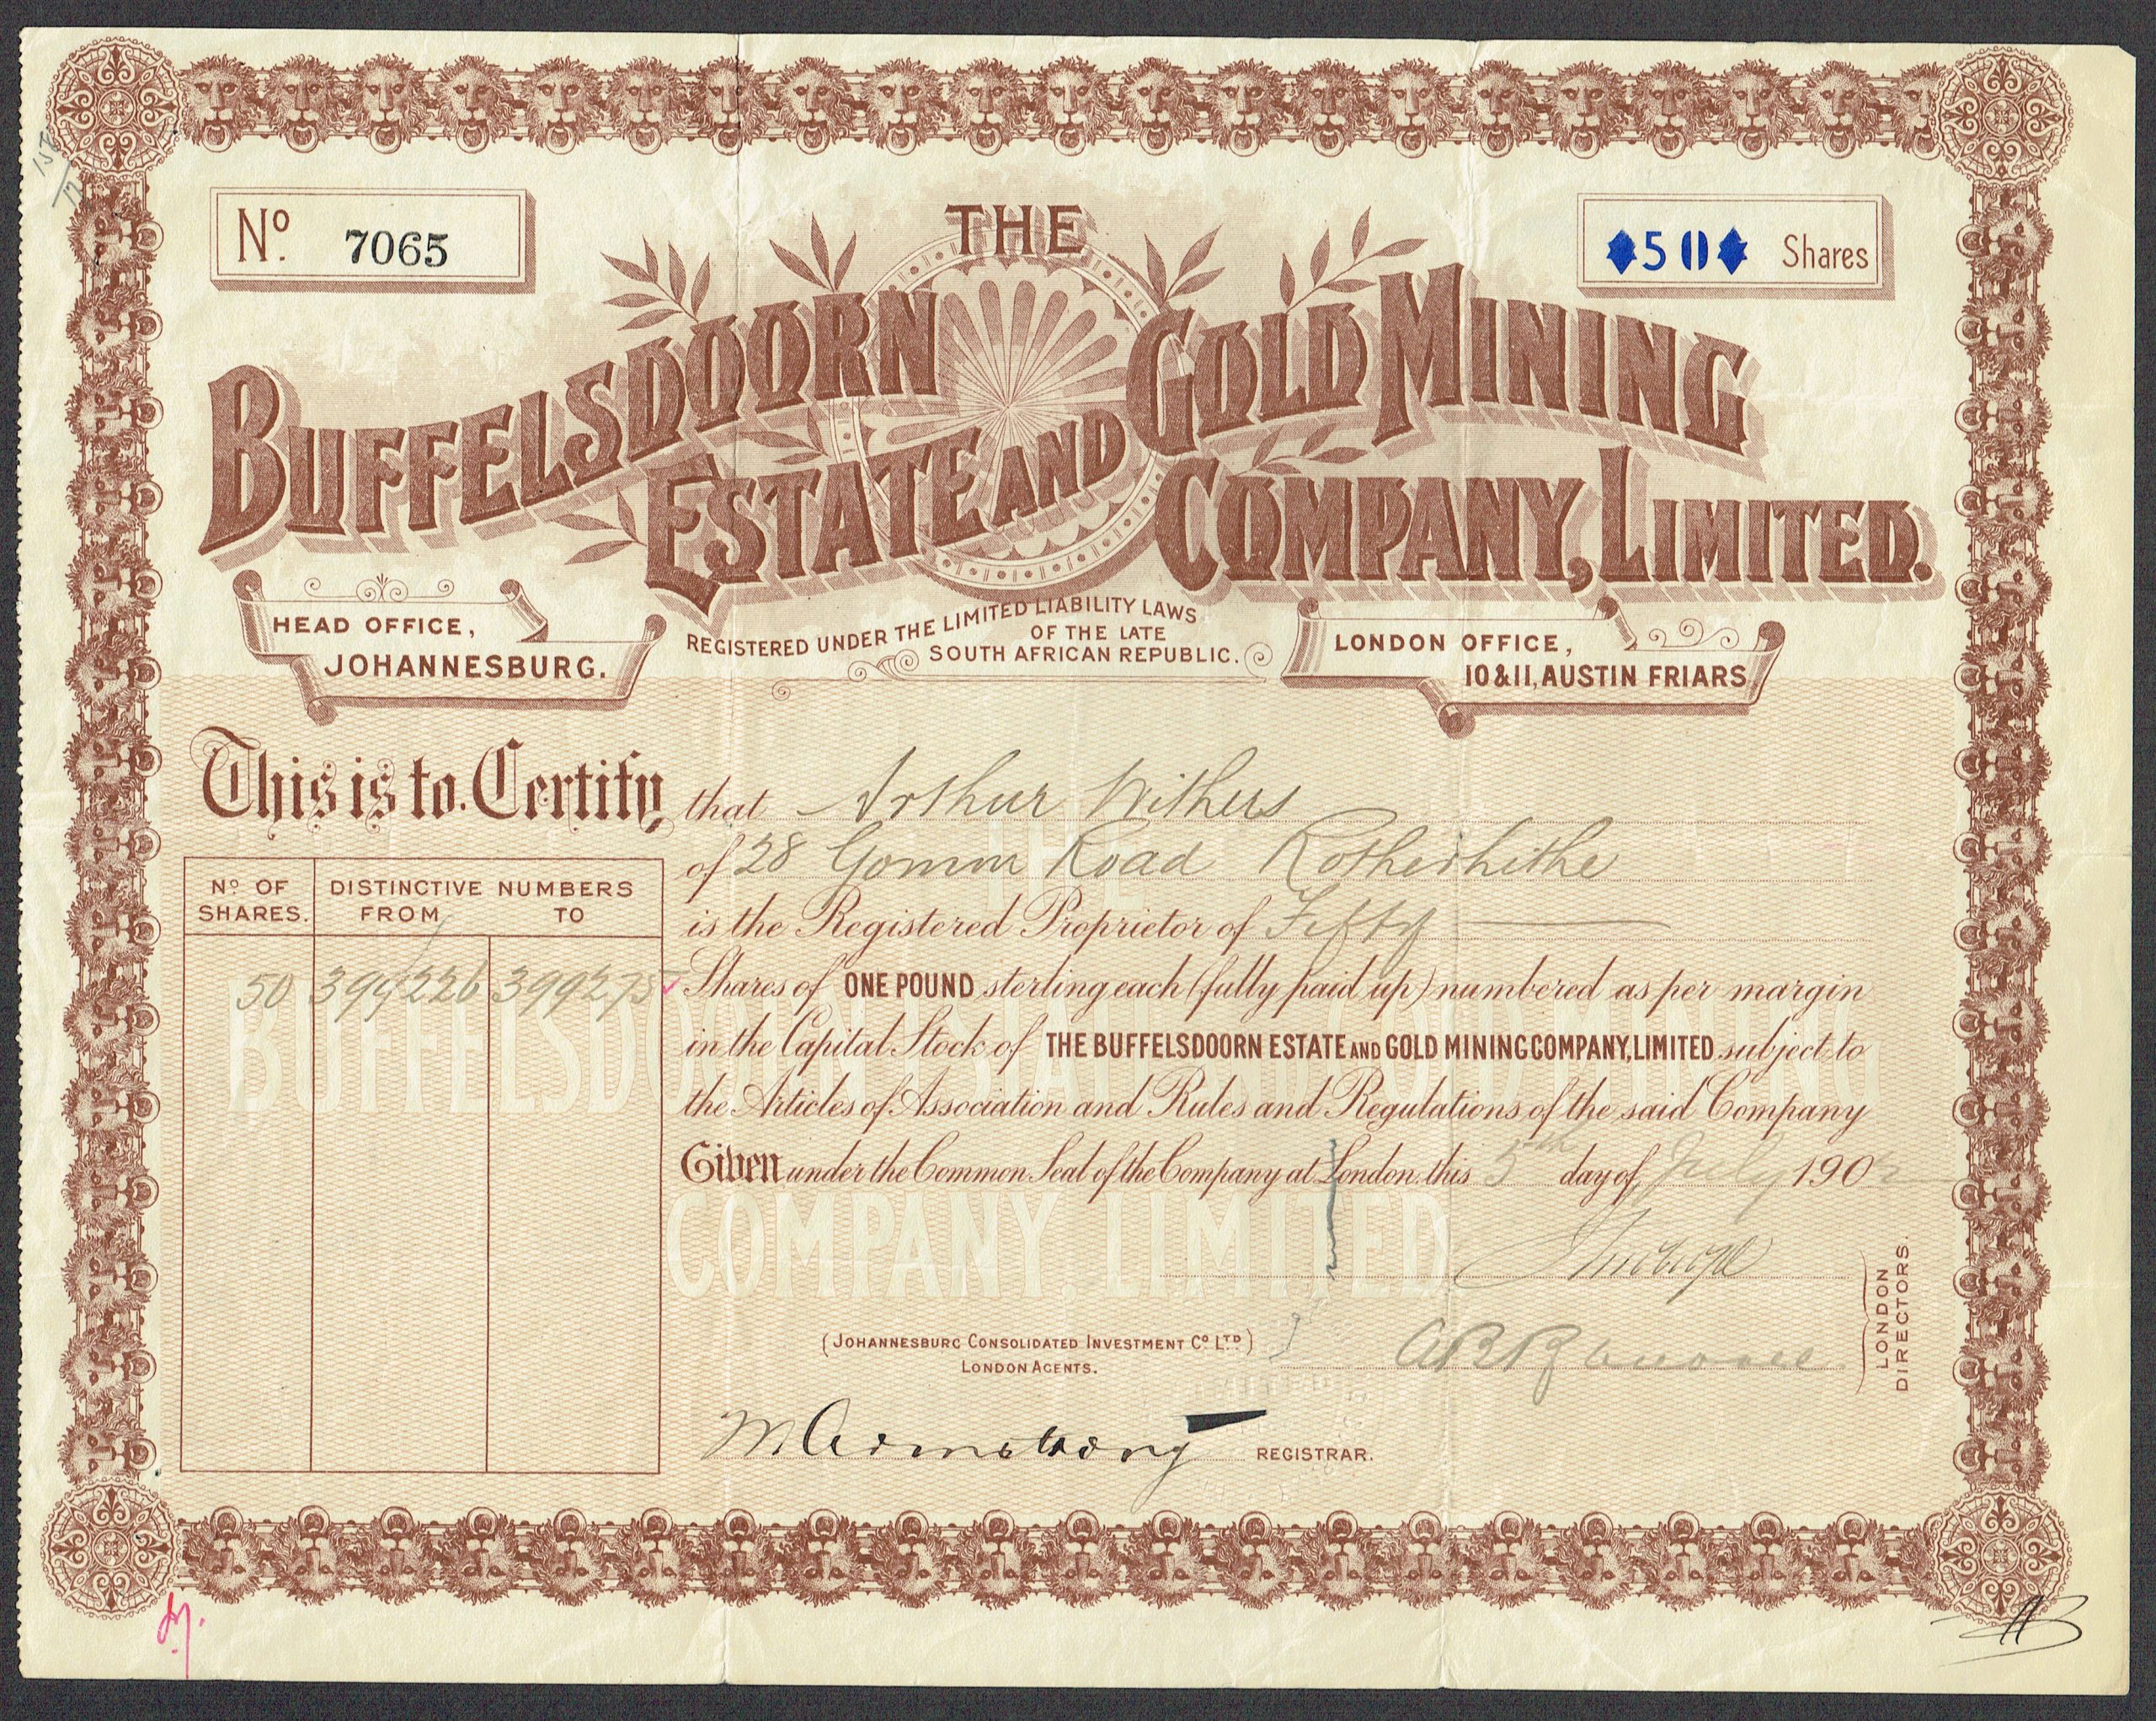 No. 7065
50 Shares
THE
BUFFELSDOORN
ESTATE AND
GOLD MINING
COMPANY, LIMITED.
HEAD OFFICE,
JOHANNESBURG.
REGISTERED UNDER THE LIMITED LIABILITY LAWS
OF THE LATE
SOUTH AFRICAN REPUBLIC.
LONDON OFFICE,
10 & 11, AUSTIN FRIARS
This is to Certify that Arthur Withers
of 28 Road Rotherhithe
is the Registered Proprietor of Fifty
Shares of ONE POUND sterling each (fully paid up) numbered as per margin
in the Capital Stock of THE BUFFELSDOORN ESTATE AND GOLD MINING COMPANY, LIMITED subject to
the Articles of Association and Rules and Regulations of the said Company
Given under the Common Seal of the Company at London this 5th day of July 190
No. OF SHARES.
DISTINCTIVE NUMBERS
FROM TO
50 399226 399275
THE
BUFFELSDOORN ESTATE AND GOLD MINING
COMPANY, LIMITED
LONDON
DIRECTORS.
(JOHANNESBURG CONSOLIDATED INVESTMENT Co. LTD.)
LONDON AGENTS.
M Armstrong REGISTRAR.